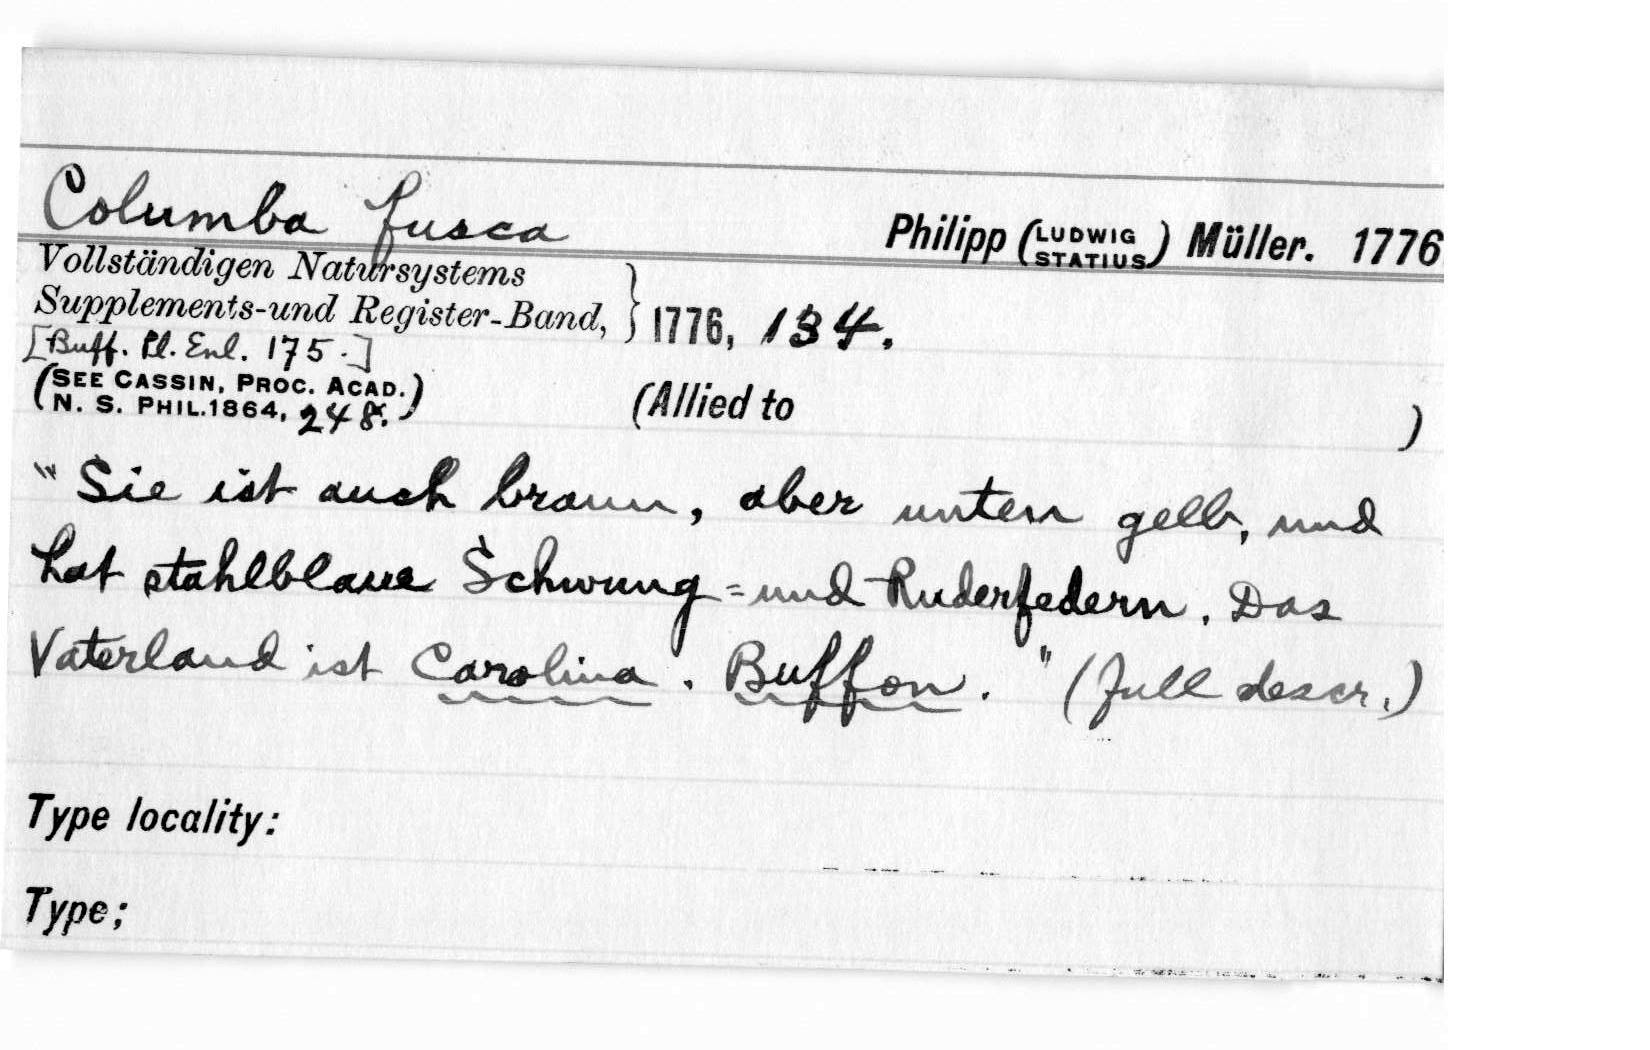 Columba fusca
Philipp (LUDWIG STATIUS) Müller. 1776
Vollständigen Natursystems
Supplements-und Register-Band, } 1776, 134.
[Buff. Pl. Enl. 175.]
(SEE CASSIN, PROC. ACAD.
N. S. PHIL. 1864, 248.)
(Allied to )
"Sie ist auch braun, aber unten gelb, und
hat stahlblaue Schwung=und Ruderfedern. Das
Vaterland ist Carolina. Buffon." (full descr.)
Type locality:
Type;